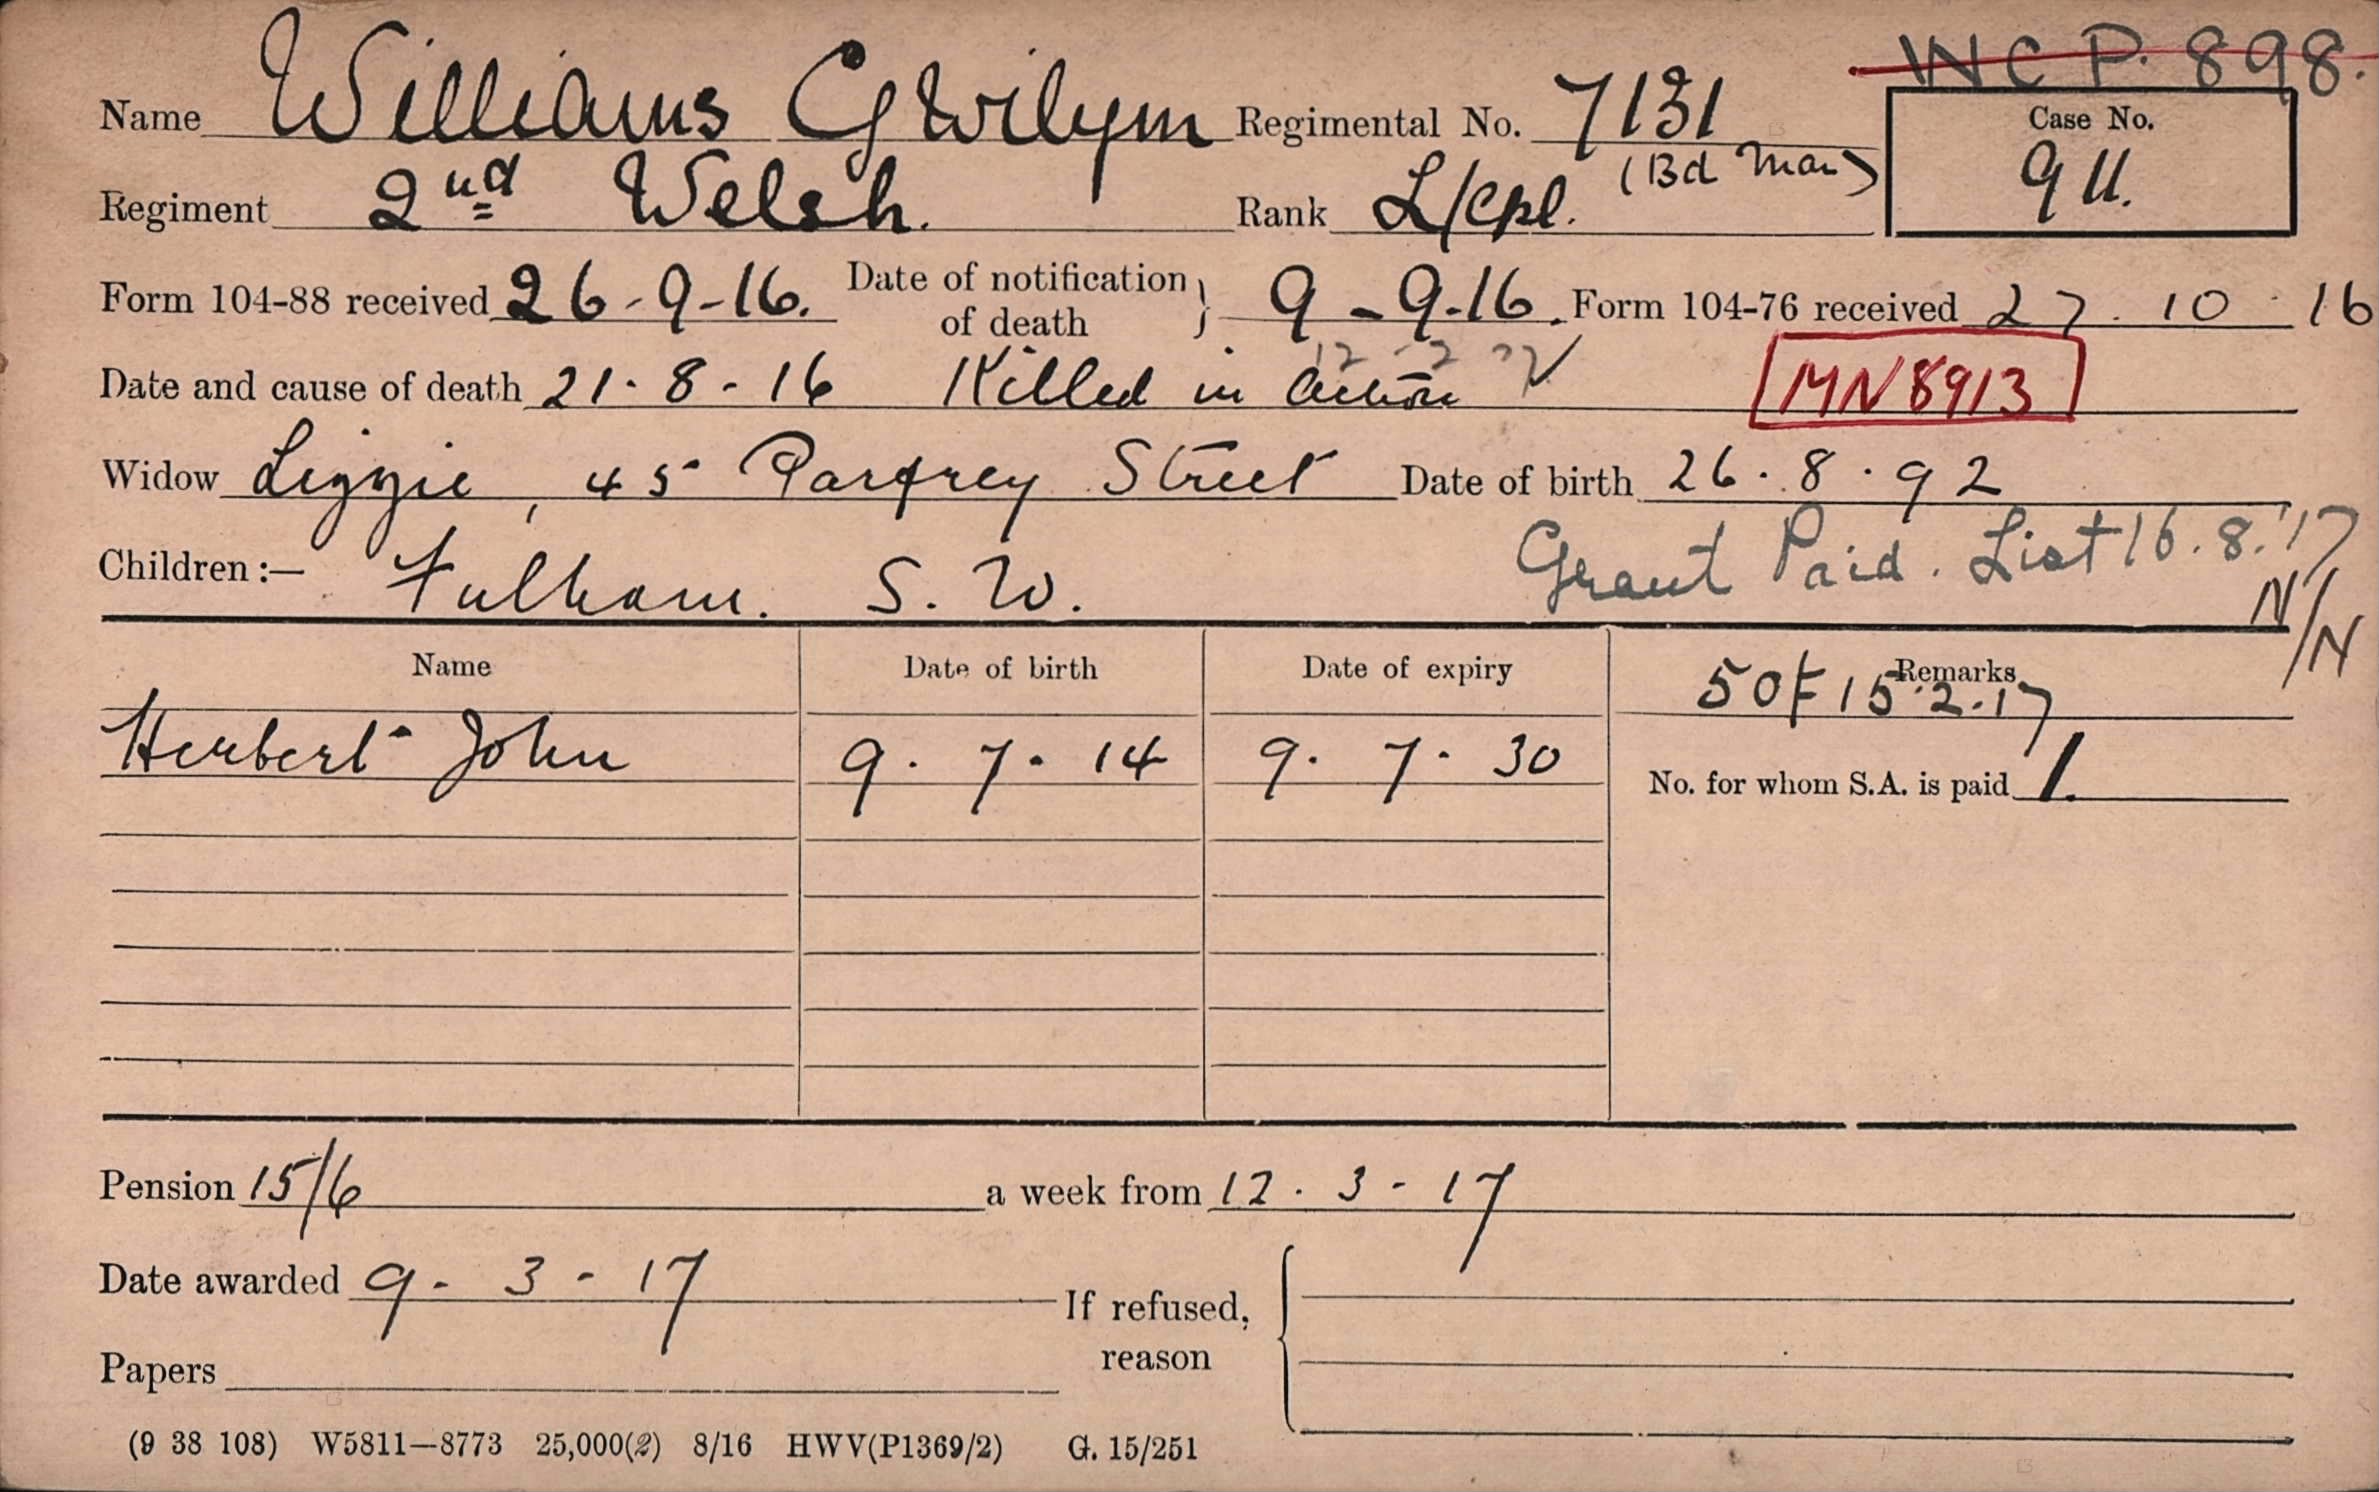 W C P. 898.
Name Williams Gwilym Regimental No. 7131 Case No.
Regiment 2nd Welsh. Rank L/Cpl. (Bd Man) 911.
Form 104-88 received 26-9-16. Date of notification of death } 9-9-16. Form 104-76 received 27.10.16
Date and cause of death 21.8.16 Killed in Action MN8913
Widow Lizzie, 45 Parfrey Street Date of birth 26.8.92
Children :— Fulham. S. W. Grant Paid. List 16.8.'17
N/N
Name Date of birth Date of expiry Remarks
15.2.17
Herbert John 9.7.14 9.7.30
No. for whom S.A. is paid 1.
Pension 15/6 a week from 12.3-17
Date awarded 9-3-17 If refused, reason
Papers
(9 38 108) W5811—8773 25,000(2) 8/16 HWV(P1369/2) G. 15/251